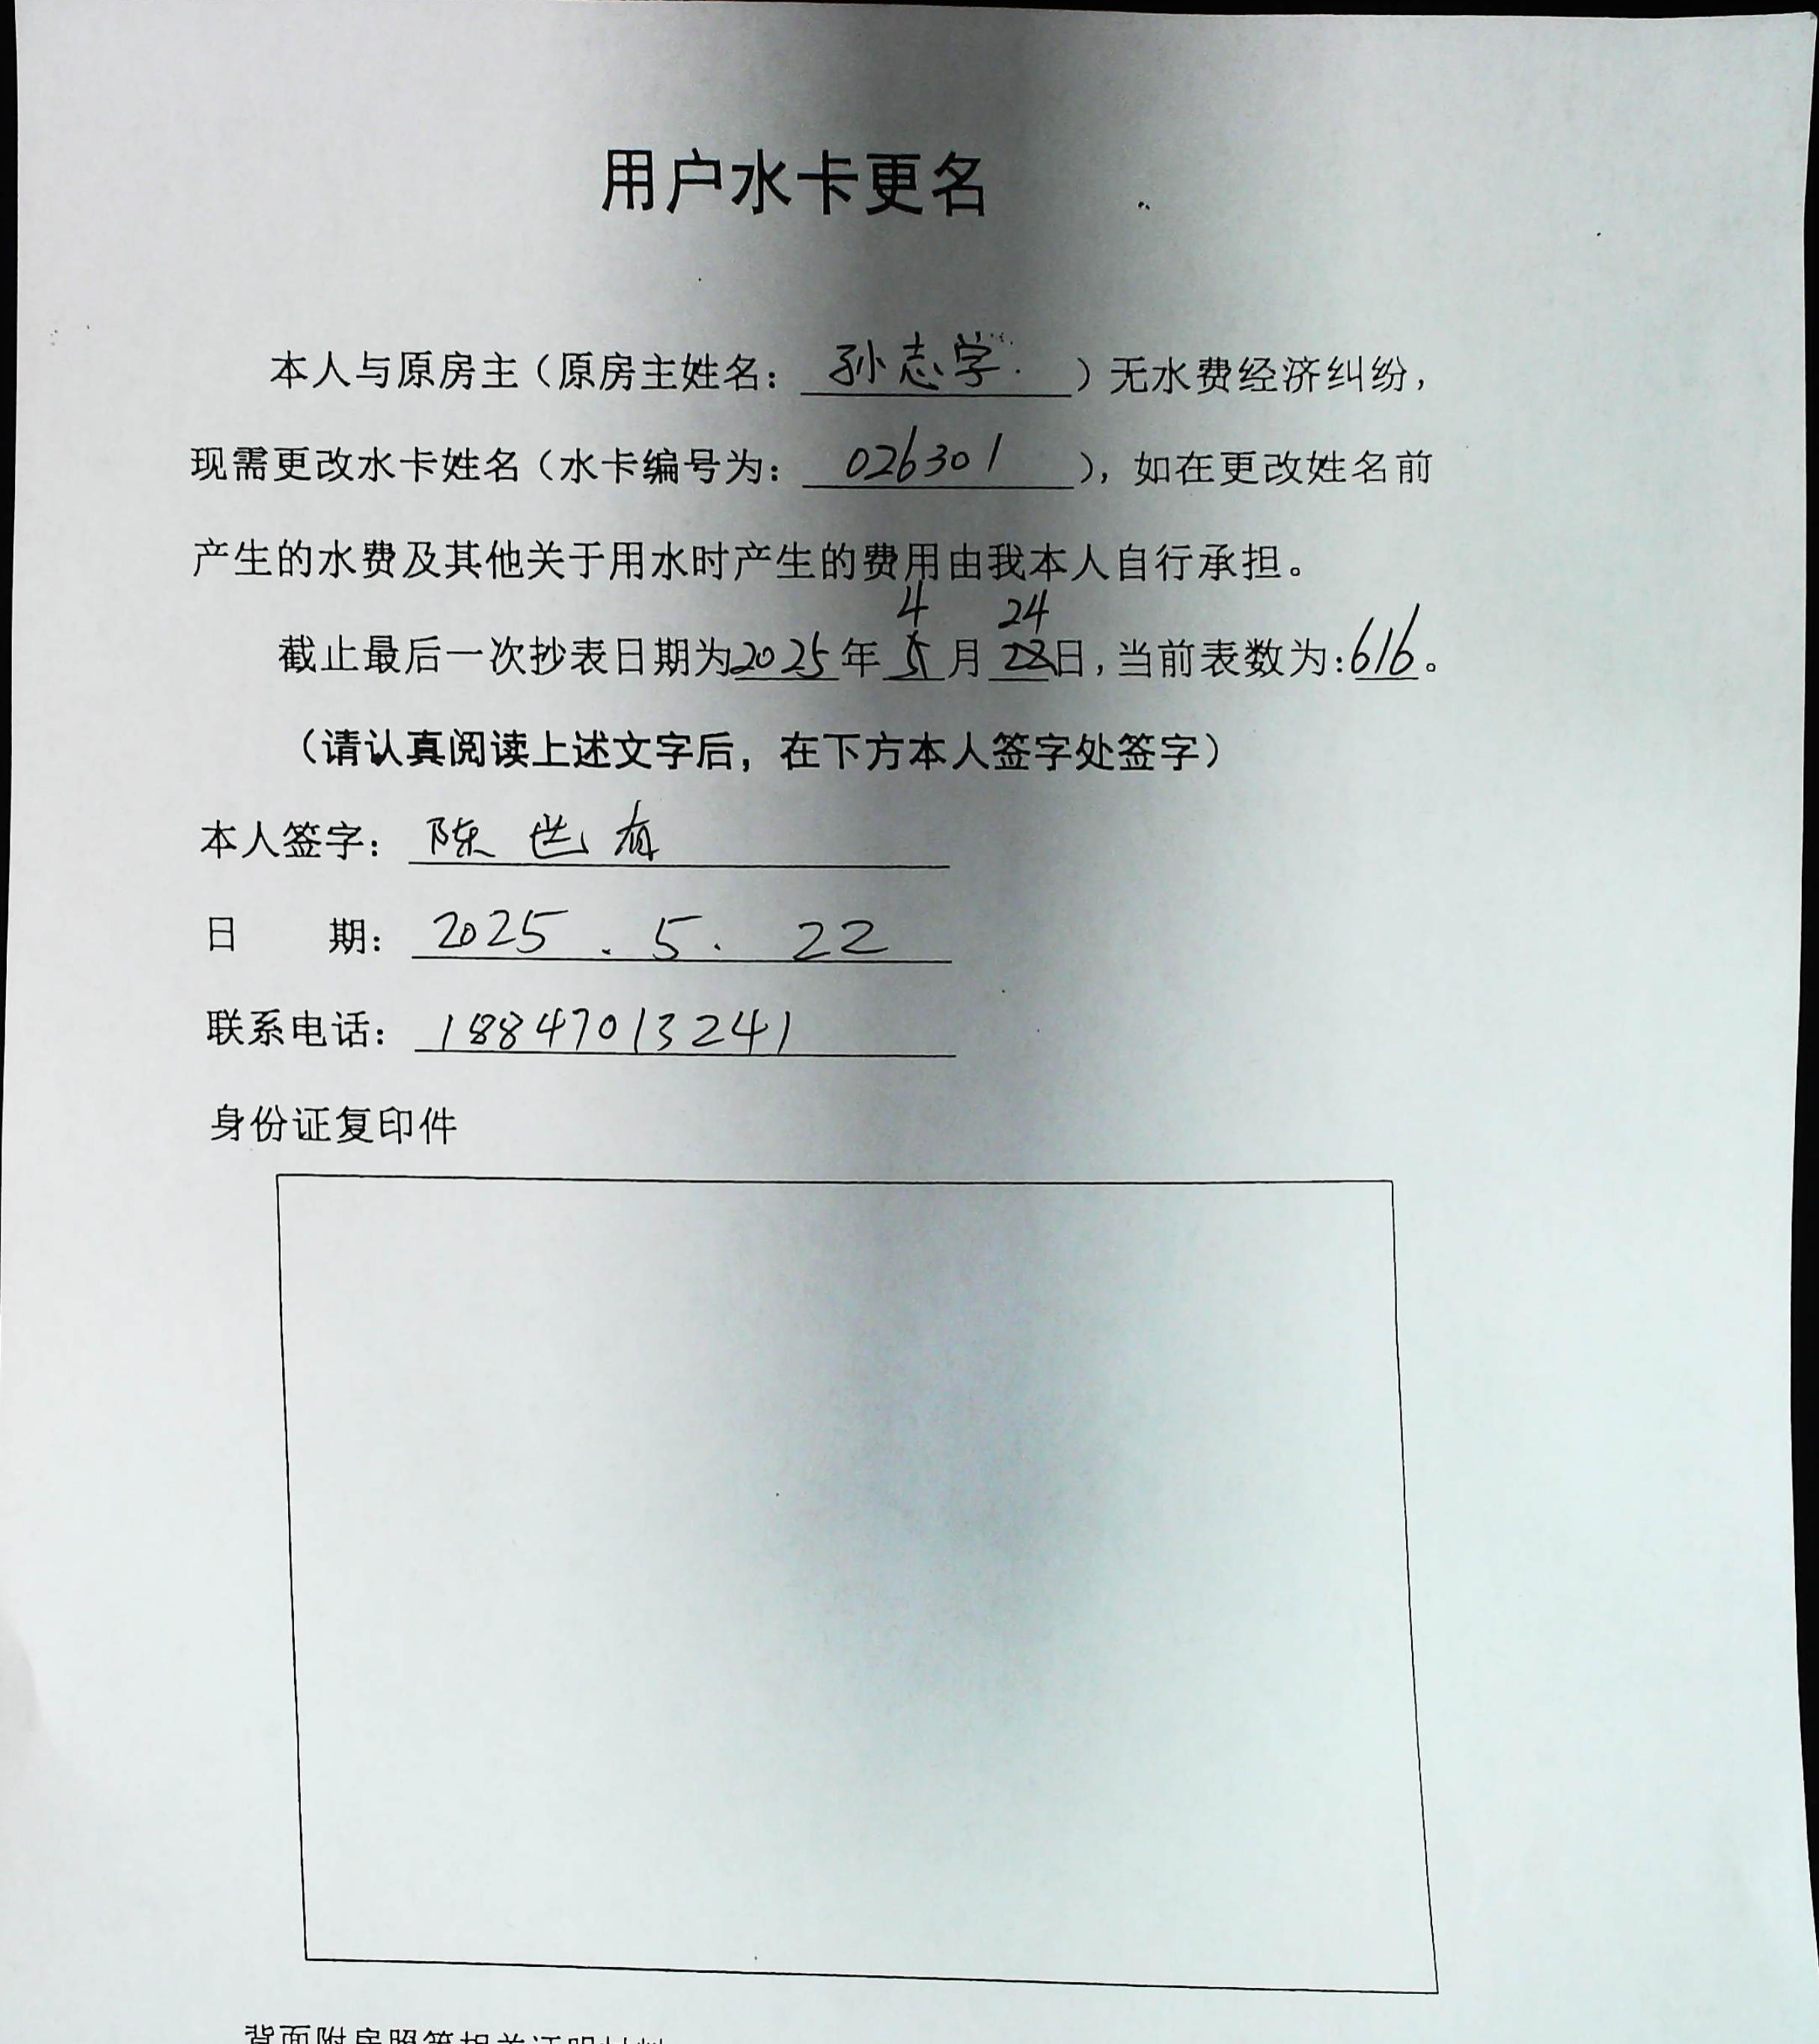 用户水卡更名
本人与原房主（原房主姓名：孙志学）无水费经济纠纷，
现需更改水卡姓名（水卡编号为：026301），如在更改姓名前
产生的水费及其他关于用水时产生的费用由我本人自行承担。
4 24
截止最后一次抄表日期为2025年5月22日，当前表数为：616。
（请认真阅读上述文字后，在下方本人签字处签字）
本人签字：陈世有
日 期：2025.5.22
联系电话：18847013241
身份证复印件
背面附房照等相关证明材料